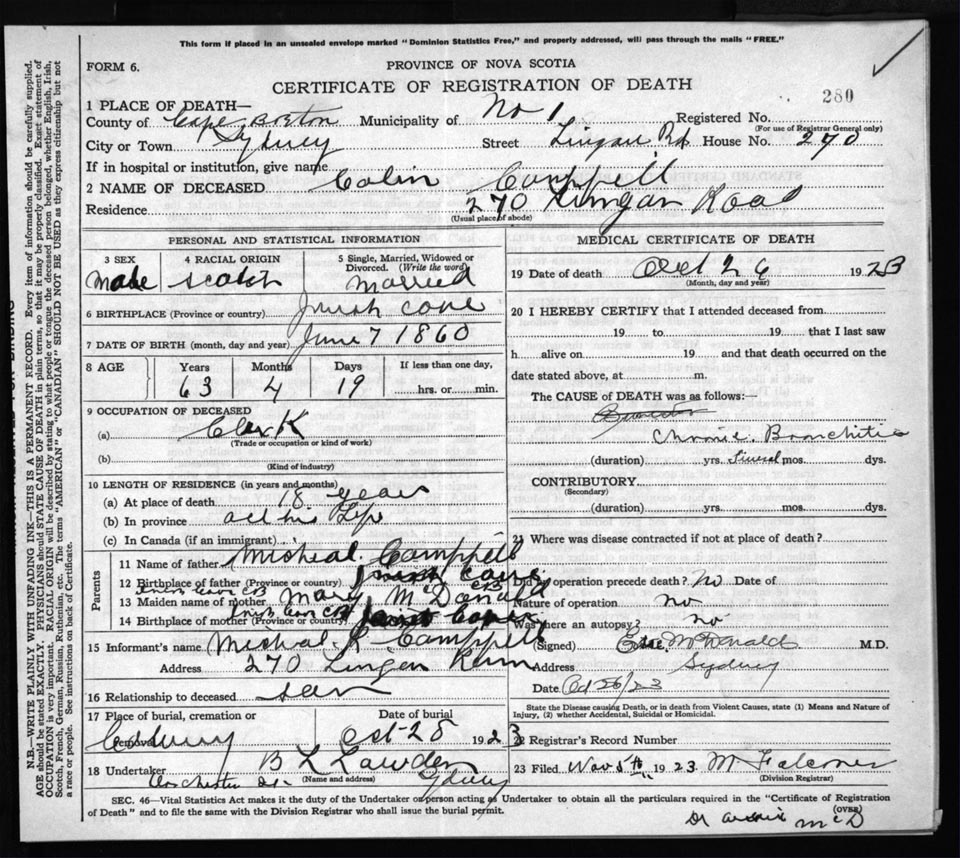 This form if placed in an unsealed envelope marked "Dominion Statistics Free," and properly addressed, will pass through the mails "FREE."
FORM 6. PROVINCE OF NOVA SCOTIA
CERTIFICATE OF REGISTRATION OF DEATH
280
1 PLACE OF DEATH—
County of Cape Breton Municipality of No 1 Registered No.
(For use of Registrar General only)
City or Town Sydney Street Lingan Rd House No. 270
If in hospital or institution, give name
2 NAME OF DECEASED Colin Camppell
Residence 270 Lingan Road
(Usual place of abode)
PERSONAL AND STATISTICAL INFORMATION
3 SEX 4 RACIAL ORIGIN 5 Single, Married, Widowed or Divorced. (Write the word)
Male Scotch Married
6 BIRTHPLACE (Province or country) Irish Cove
7 DATE OF BIRTH (month, day and year) June 7 1860
8 AGE Years Months Days If less than one day,
63 4 19 hrs. or min.
9 OCCUPATION OF DECEASED
(a) Clerk
(Trade or occupation or kind of work)
(b)
(Kind of industry)
10 LENGTH OF RESIDENCE (in years and months)
(a) At place of death 18 years
(b) In province all his Life
(c) In Canada (if an immigrant)
Parents
11 Name of father Micheal Camppell
12 Birthplace of father (Province or country) Irish Cove CB
13 Maiden name of mother Mary McDonald
14 Birthplace of mother (Province or country) Irish Cove CB
15 Informant's name Micheal R Camppell
Address 270 Lingan
16 Relationship to deceased son
17 Place of burial, cremation or removal Date of burial
Sydney Oct 28 1923
18 Undertaker B L Lawden
(Name and address)
Dorchester St. Sydney
MEDICAL CERTIFICATE OF DEATH
19 Date of death Oct 26 1923
(Month, day and year)
20 I HEREBY CERTIFY that I attended deceased from
19 to 19 that I last saw
h alive on 19 and that death occurred on the
date stated above, at m.
The CAUSE of DEATH was as follows:—
Chronic Bronchitis
(duration) yrs. Several mos. dys.
CONTRIBUTORY
(Secondary)
(duration) yrs. mos. dys.
21 Where was disease contracted if not at place of death?
Did an operation precede death? No Date of
Nature of operation no
Was there an autopsy? no
(Signed) McDonald M.D.
Address Sydney
Date Oct 26/23
State the Disease causing Death, or in death from Violent Causes, state (1) Means and Nature of
Injury, (2) whether Accidental, Suicidal or Homicidal.
22 Registrar's Record Number
23 Filed Nov 5th 1923 M Falconer
(Division Registrar)
SEC. 46—Vital Statistics Act makes it the duty of the Undertaker or person acting as Undertaker to obtain all the particulars required in the "Certificate of Registration
of Death" and to file the same with the Division Registrar who shall issue the burial permit.
(OVER)
Dr McD
N.B.—WRITE PLAINLY WITH UNFADING INK—THIS IS A PERMANENT RECORD. Every item of information should be carefully supplied.
AGE should be stated EXACTLY. PHYSICIANS should STATE CAUSE OF DEATH in plain terms, so that it may be properly classified. Exact statement of
OCCUPATION is very important. RACIAL ORIGIN will be described by stating to what people or tongue the deceased person belonged, whether English, Irish,
Scotch, French, German, Russian, Ruthenian, etc. The terms "AMERICAN" or "CANADIAN" SHOULD NOT BE USED as they express citizenship but not
a race or people. See instructions on back of Certificate.